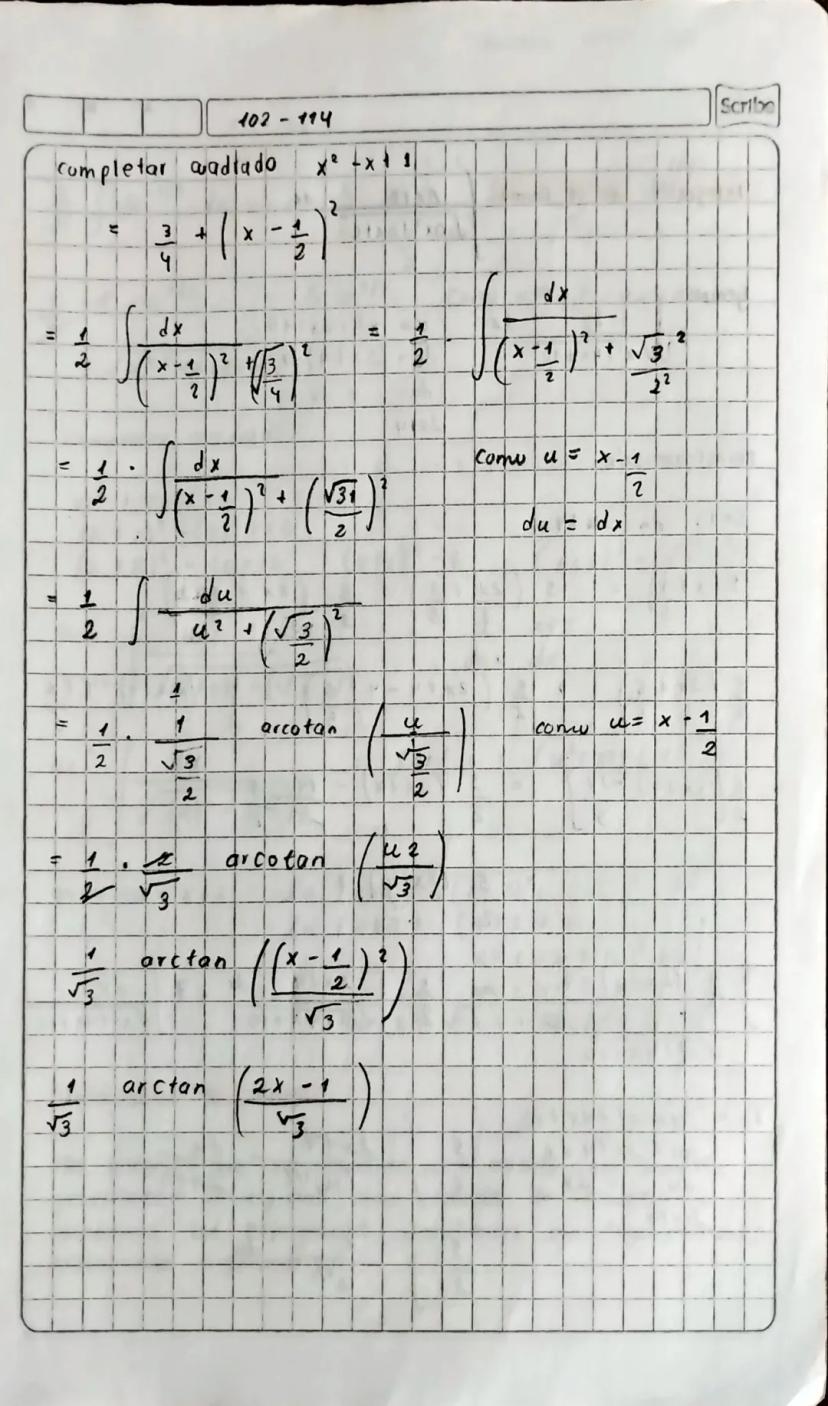 Scribe
102 - 114
completar cuadrado x² - x + 1
= 3/4 + (x - 1/2)²
= 1/2 ∫ dx / ((x - 1/2)² + (√3/4)²) = 1/2 · ∫ dx / ((x - 1/2)² + √3²/2²)
= 1/2 · ∫ dx / ((x - 1/2)² + (√31/2)²) como u = x - 1/2
du = dx
= 1/2 ∫ du / (u² + (√3/2)²)
= 1/2 · 1/(√3/2) arcotan (u/(√3/2)) como u = x - 1/2
= 1/2 · 2/√3 arcotan (u2/√3)
1/√3 arctan ((x - 1/2)2/√3)
1/√3 arctan ((2x - 1)/√3)